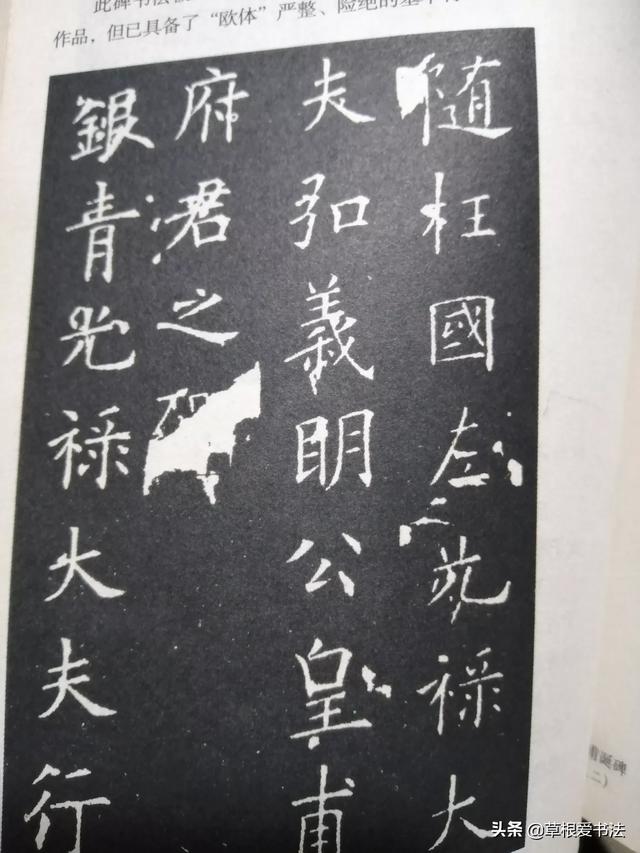 此碑书法
作品，但已具备了“欧体”严整、险绝的基本
随柱國左光禄大
夫弘義明公皇甫
府君之
銀青光禄大夫行
甫诞碑
二）
头条 @草根爱书法